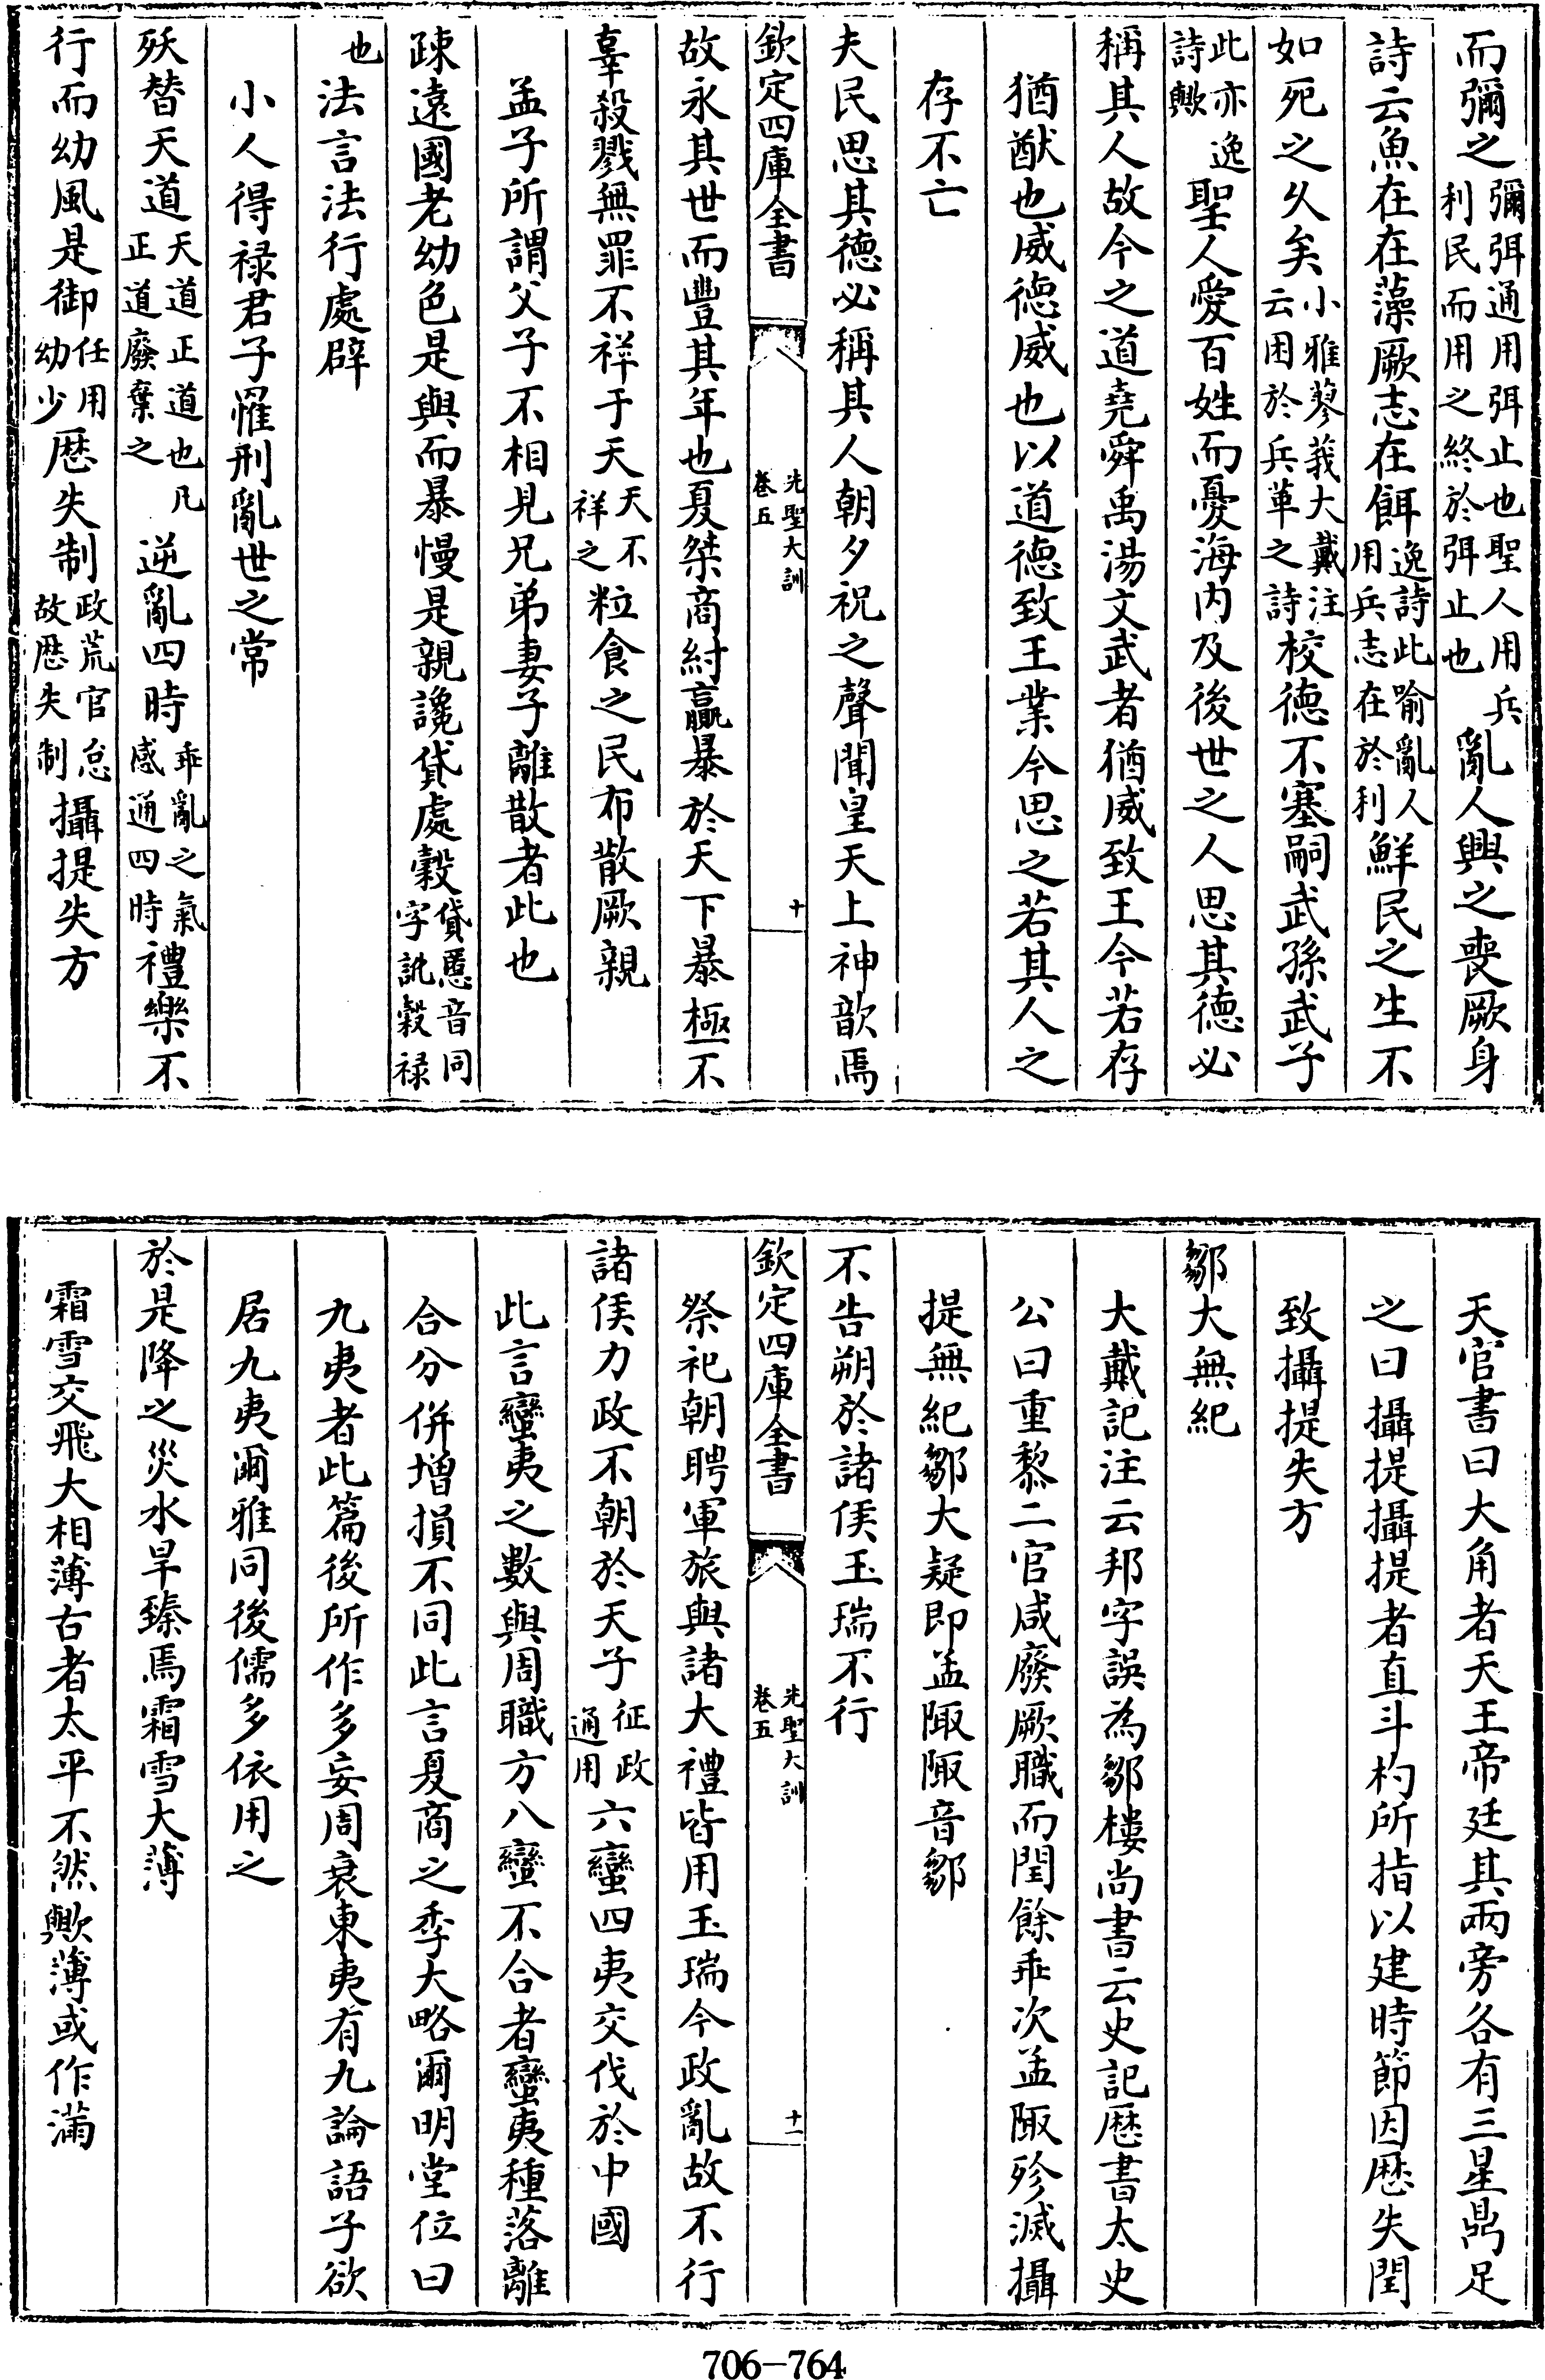 而彌之彌弭通用弭止也聖人用兵利民而用之終於弭止也亂人興之喪厥身
詩云魚在在藻厥志在餌逸詩此喻亂人用兵志在於利鮮民之生不
如死之乆矣小雅蓼莪大戴注云困於兵革之詩校德不塞嗣武孫武子
此亦逸詩歟聖人愛百姓而憂海内及後世之人思其德必
稱其人故今之道堯舜禹湯文武者猶威致王今若存
猶猷也威德威也以道德致王業今思之若其人之
存不亡
夫民思其德必稱其人朝夕祝之聲聞皇天上神歆焉
欽定四庫全書 先聖大訓 卷五 十
故永其世而豐其年也夏桀商紂羸暴於天下暴極不
辜殺戮無罪不祥于天天不祥之粒食之民布散厥親
孟子所謂父子不相見兄弟妻子離散者此也
疎遠國老幼色是與而暴慢是親讒貸處榖貸慝音同字訛榖禄
也法言法行處辟
小人得禄君子罹刑亂世之常
殀替天道天道正道也凡正道廢棄之逆亂四時乖亂之氣感通四時禮樂不
行而幼風是御任用幼少厯失制政荒官怠故厯失制攝提失方
天官書曰大角者天王帝廷其兩旁各有三星鼎足
之曰攝提攝提者直斗杓所指以建時節因厯失閏
致攝提失方
鄒大無紀
大戴記注云邦字誤為鄒樓尚書云史記厯書太史
公曰重黎二官咸廢厥職而閏餘乖次孟陬殄滅攝
提無紀鄒大疑即孟陬陬音鄒
不告朔於諸侯玉瑞不行
欽定四庫全書 先聖大訓 卷五 十一
祭祀朝聘軍旅與諸大禮皆用玉瑞今政亂故不行
諸侯力政不朝於天子征政通用六蠻四夷交伐於中國
此言蠻夷之數與周職方八蠻不合者蠻夷種落離
合分併增損不同此言夏商之季大略爾明堂位曰
九夷者此篇後所作多妄周衰東夷有九論語子欲
居九夷爾雅同後儒多依用之
於是降之災水旱臻焉霜雪大薄
霜雪交飛大相薄古者太平不然歟薄或作滿
706-764